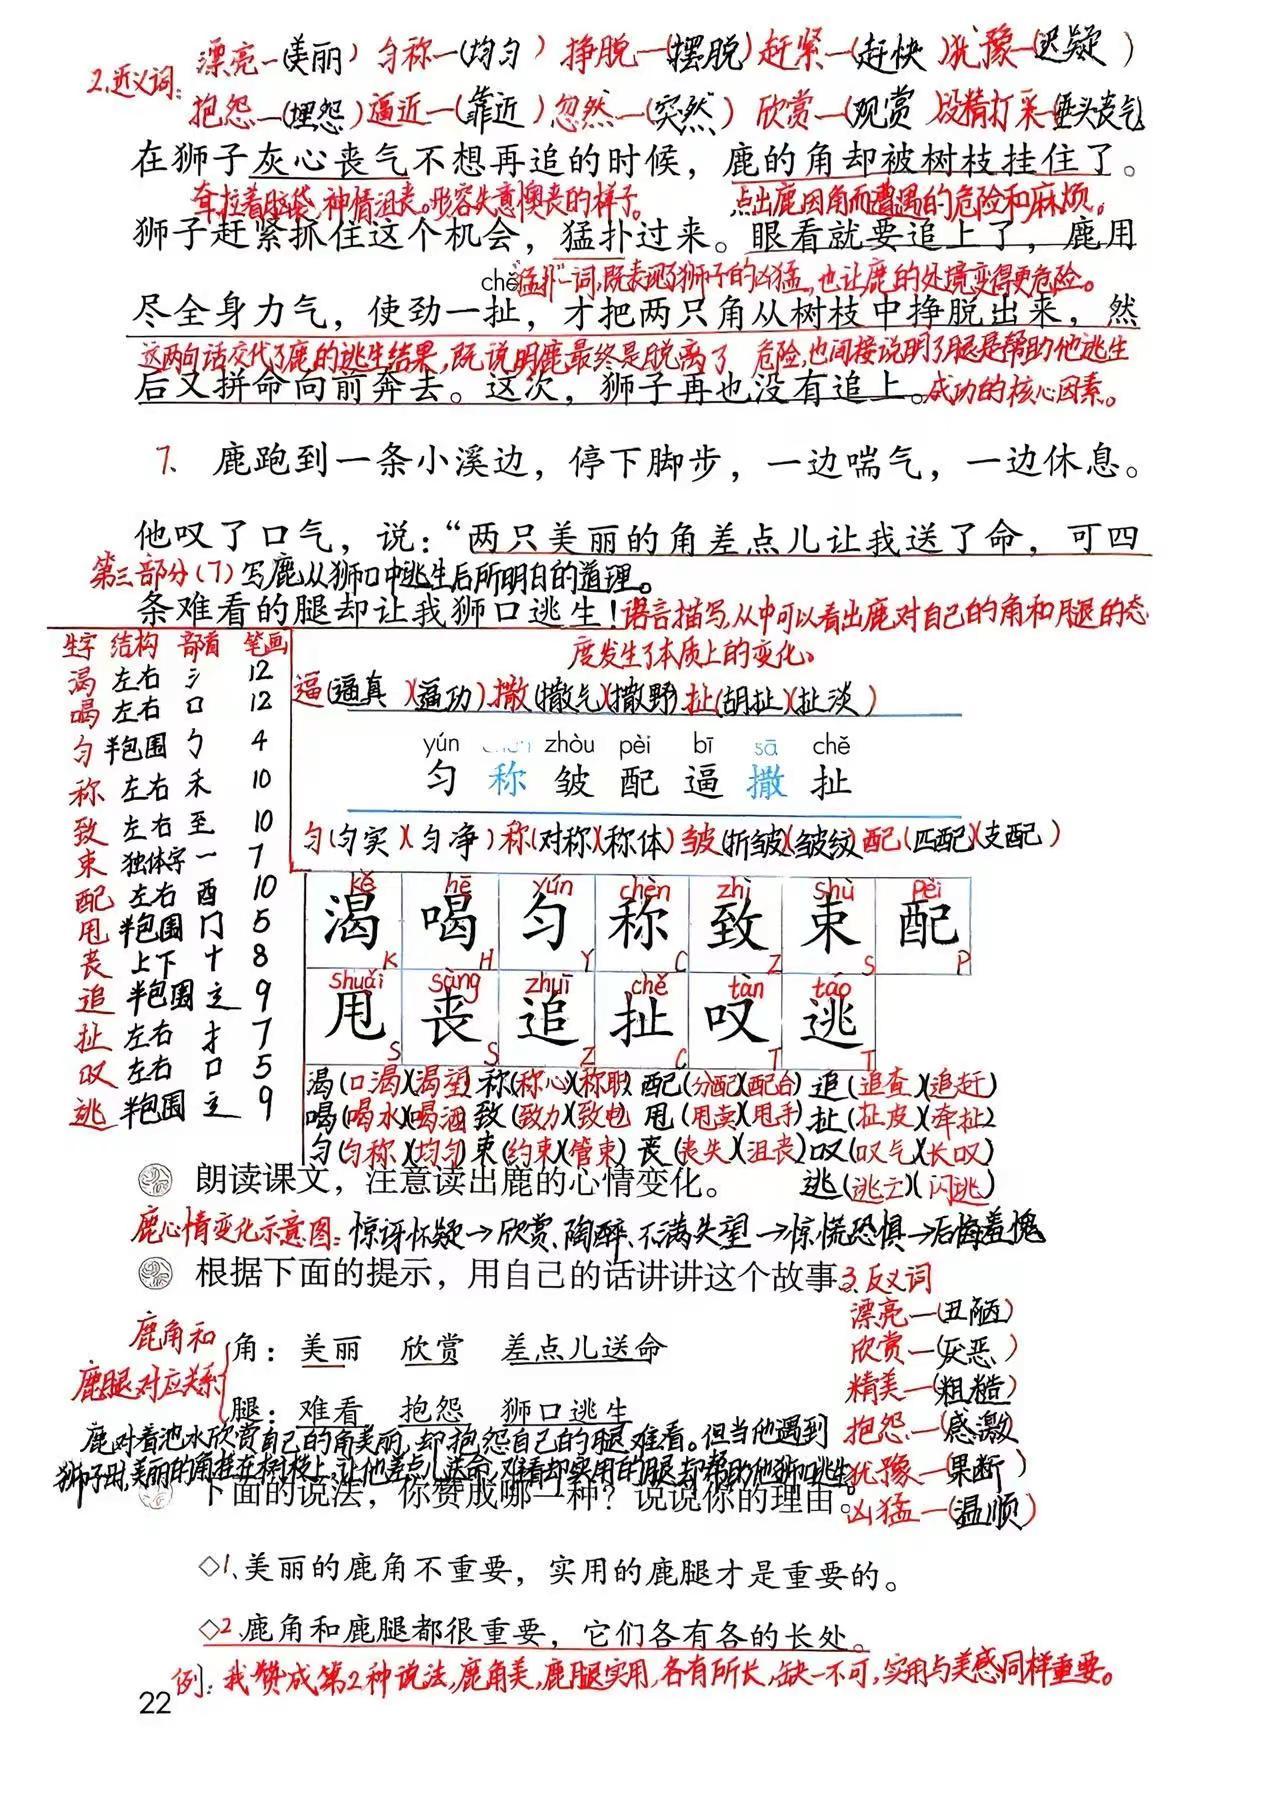 2.近义词:
漂亮—(美丽) 匀称—(均匀) 挣脱—(摆脱) 赶紧—(赶快) 犹豫—(迟疑)
抱怨—(埋怨) 逼近—(靠近) 忽然—(突然) 欣赏—(观赏) 没精打采—(垂头丧气
在狮子灰心丧气不想再追的时候，鹿的角却被树枝挂住了。
耷拉着脑袋,神情沮丧。形容失意懊丧的样子。 点出鹿因角而遭遇的危险和麻烦。
狮子赶紧抓住这个机会，猛扑过来。眼看就要追上了，鹿用
chě
"猛扑"一词,既表现了狮子的凶猛,也让鹿的处境变得更危险。
尽全身力气，使劲一扯，才把两只角从树枝中挣脱出来，然
这两句话交代了鹿的逃生结果,既说明鹿最终是脱离了 危险,也间接说明了腿是帮助他逃生
后又拼命向前奔去。这次，狮子再也没有追上。成功的核心因素。
7. 鹿跑到一条小溪边，停下脚步，一边喘气，一边休息。
他叹了口气，说：“两只美丽的角差点儿让我送了命，可四
第三部分(7)写鹿从狮口中逃生后所明白的道理。
条难看的腿却让我狮口逃生!语言描写,从中可以看出鹿对自己的角和腿的态
度发生了本质上的变化。
生字 结构 部首 笔画
渴 左右 氵 12
喝 左右 口 12
匀 半包围 勹 4
称 左右 禾 10
致 左右 至 10
束 独体字 一 7
配 左右 酉 10
甩 半包围 冂 5
丧 上下 十 8
追 半包围 辶 9
扯 左右 扌 7
叹 左右 口 5
逃 半包围 辶 9
逼(逼真)(逼功) 撒(撒气)(撒野) 扯(胡扯)(扯淡)
yún zhòu pèi bī sā chě
匀 称 皱 配 逼 撒 扯
匀(匀实)(匀净) 称(对称)(称体) 皱(折皱)(皱纹) 配(匹配)(支配)
kě hē yún chèn zhì shù pèi
渴 喝 匀 称 致 束 配
K H Y C Z S P
shuǎi sàng zhuī chě tàn táo
甩 丧 追 扯 叹 逃
S S Z C T T
渴(口渴)(渴望) 称(称心)(称职) 配(分配)(配合) 追(追查)(追赶)
喝(喝水)(喝酒) 致(致力)(致电) 甩(甩卖)(甩手) 扯(扯皮)(牵扯)
匀(匀称)(均匀) 束(约束)(管束) 丧(丧失)(沮丧) 叹(叹气)(长叹)
逃(逃亡)(闪逃)
朗读课文，注意读出鹿的心情变化。
鹿心情变化示意图: 惊讶怀疑→欣赏、陶醉、不满失望→惊慌恐惧→后悔羞愧
根据下面的提示，用自己的话讲讲这个故事
鹿角和
鹿腿对应关系
角：美丽 欣赏 差点儿送命
腿：难看 抱怨 狮口逃生
鹿对着池水欣赏自己的角美丽,却抱怨自己的腿难看。但当他遇到
狮子时,美丽的角挂在树枝上,让他差点儿送命,难看却实用的腿却帮助他狮口逃生。
3.反义词
漂亮—(丑陋)
欣赏—(厌恶)
精美—(粗糙)
抱怨—(感激)
犹豫—(果断)
凶猛—(温顺)
下面的说法，你赞成哪一种？说说你的理由。
◇1、美丽的鹿角不重要，实用的鹿腿才是重要的。
◇2、鹿角和鹿腿都很重要，它们各有各的长处。
例: 我赞成第2种说法,鹿角美,鹿腿实用,各有所长,缺一不可,实用与美感同样重要。
22